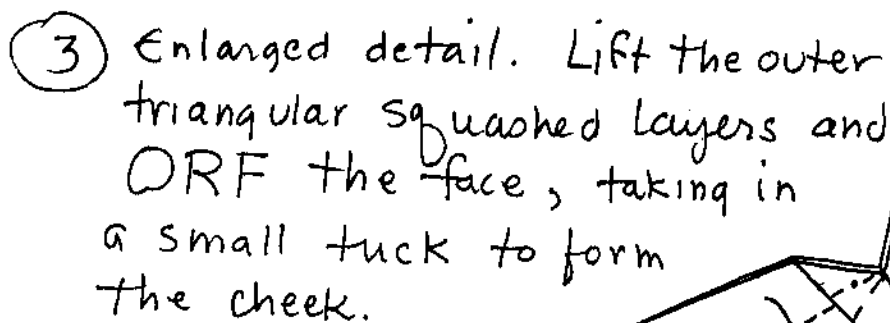 3 Enlarged detail. Lift the outer
triangular squashed layers and
ORF the face, taking in
a small tuck to form
the cheek.